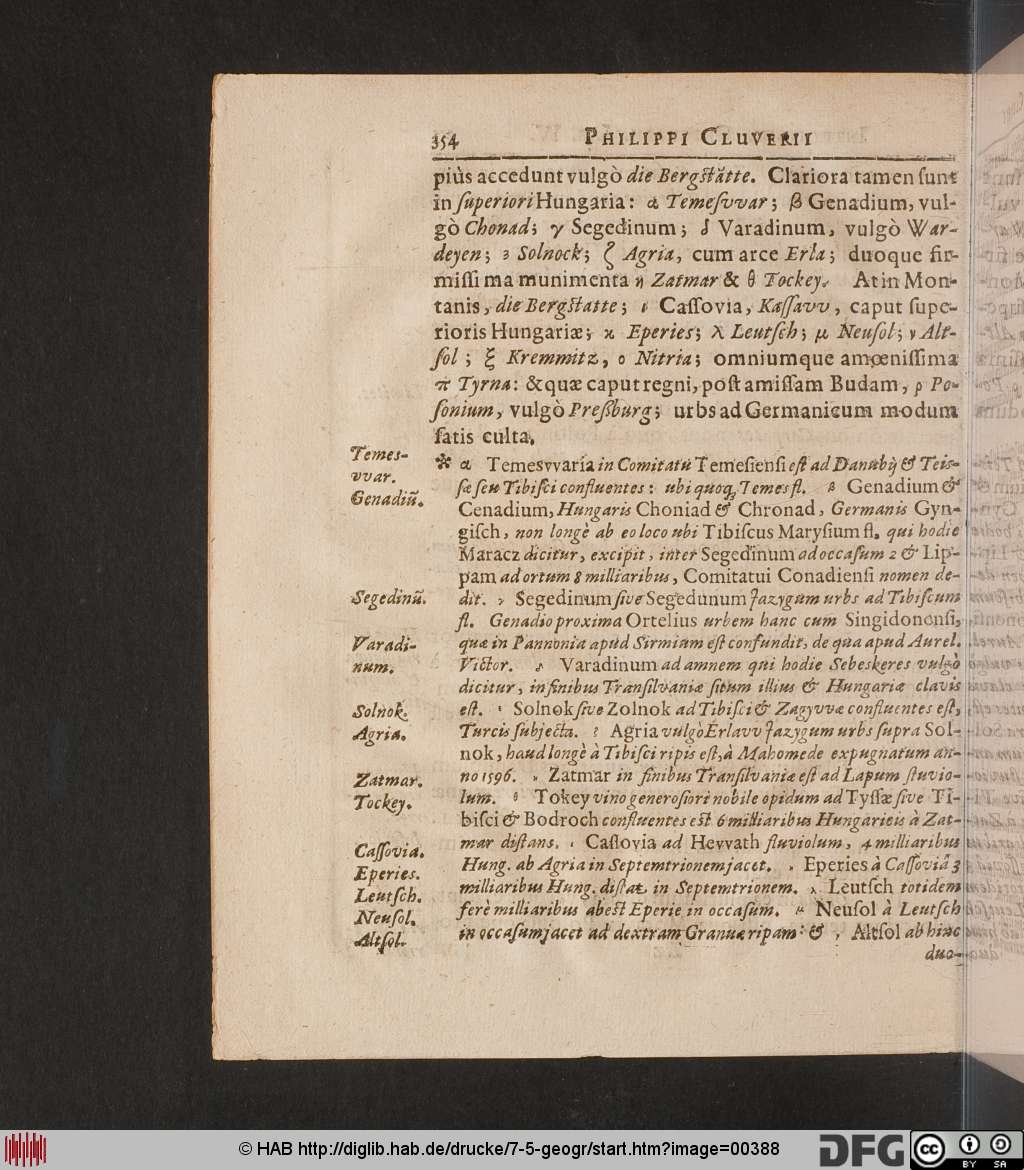 354 PHILIPPI CLUVERII
piùs accedunt vulgò die Bergſtätte. Clariora tamen ſunt
in ſuperiori Hungaria: α Temeſvvar; β Genadium, vul-
gò Chonad; γ Segedinum; δ Varadinum, vulgò War-
deyen; ε Solnock; ζ Agria, cum arce Erla; duoque fir-
miſſi ma munimenta η Zatmar & θ Tockey. At in Mon-
tanis, die Bergſtatte; ι Caſſovia, Kaſſavv, caput ſupe-
rioris Hungariæ; κ Eperies; λ Leutſch; μ Neuſol; ν Alt-
ſol; ξ Kremmitz, ο Nitria; omniumque amœniſſima
π Tyrna: & quæ caput regni, poſt amiſſam Budam, ρ Po-
ſonium, vulgò Preßburg; urbs ad Germanicum modum
ſatis culta.
Temes-
vvar.
Genadiũ.
Segedinũ.
Varadi-
num.
Solnok.
Agria.
Zatmar.
Tockey.
Caſſovia.
Eperies.
Leutſch.
Neuſol.
Altſol.
* α Temesvvaria in Comitatu Temeſienſi eſt ad Danubij & Teis-
ſæ ſeu Tibiſci confluentes: ubi quoq; Temes fl. β Genadium &
Cenadium, Hungaris Choniad & Chronad, Germanis Gyn-
giſch, non longè ab eo loco ubi Tibiſcus Maryſium fl. qui hodie
Maracz dicitur, excipit, inter Segedinum ad occaſum 2 & Lip-
pam ad ortum 8 milliaribus, Comitatui Conadienſi nomen de-
dit. γ Segedinum ſive Segedunum Jazygum urbs ad Tibiſcum
fl. Genadio proxima Ortelius urbem hanc cum Singidonenſi,
quæ in Pannonia apud Sirmium eſt confundit, de qua apud Aurel.
Victor. δ Varadinum ad amnem qui hodie Sebeskeres vulgò
dicitur, in finibus Tranſilvaniæ ſitum illius & Hungariæ clavis
eſt. ε Solnok ſive Zolnok ad Tibiſci & Zagyvvæ confluentes eſt,
Turcis ſubjecta. ζ Agria vulgò Erlavv Jazygum urbs ſupra Sol-
nok, haud longè à Tibiſci ripis eſt, à Mahomede expugnatum an-
no 1596. η Zatmar in finibus Tranſilvaniæ eſt ad Lapum fluvio-
lum. θ Tokey vino generoſiori nobile opidum ad Tyſſæ ſive Ti-
biſci & Bodroch confluentes eſt 6 milliaribus Hungaricis à Zat-
mar diſtans. ι Caſſovia ad Hevvath fluviolum, 4 milliaribus
Hung. ab Agria in Septemtrionem jacet. κ Eperies à Caſſoviâ 3
milliaribus Hung. diſtat in Septemtrionem. λ Leutſch totidem
ferè milliaribus abeſt Eperie in occaſum. μ Neuſol à Leutſch
in occaſum jacet ad dextram Granuæ ripam: & ν Altſol ab hinc
duo-
© HAB http://diglib.hab.de/drucke/7-5-geogr/start.htm?image=00388
DFG
cc
BY SA